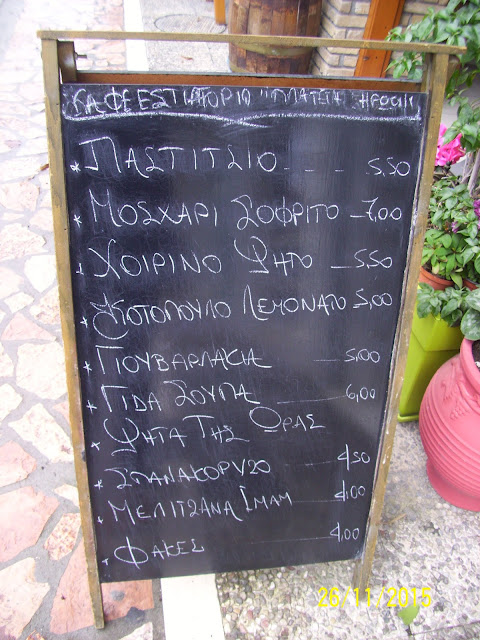 ΚΑΦΕΕΣΤΙΑΤΟΡΙΟ "ΠΛΑΤΕΙΑ ΗΡΩΩΝ"
* ΠΑΣΤΙΤΣΙΟ - - - 5,50
* ΜΟΣΧΑΡΙ ΣΟΦΡΙΤΟ - 7,00
* ΧΟΙΡΙΝΟ ΨΗΤΟ - 5,50
* ΚΟΤΟΠΟΥΛΟ ΛΕΜΟΝΑΤΟ 5,00
* ΓΙΟΥΒΑΡΛΑΚΙΑ - 5,00
* ΓΙΔΑ ΣΟΥΠΑ - 6,00
* ΨΗΤΑ ΤΗΣ ΩΡΑΣ
* ΣΠΑΝΑΚΟΡΥΖΟ - 4,50
* ΜΕΛΙΤΖΑΝΑ ΙΜΑΜ - 4,00
* ΦΑΚΕΣ - 4,00
26/11/2015